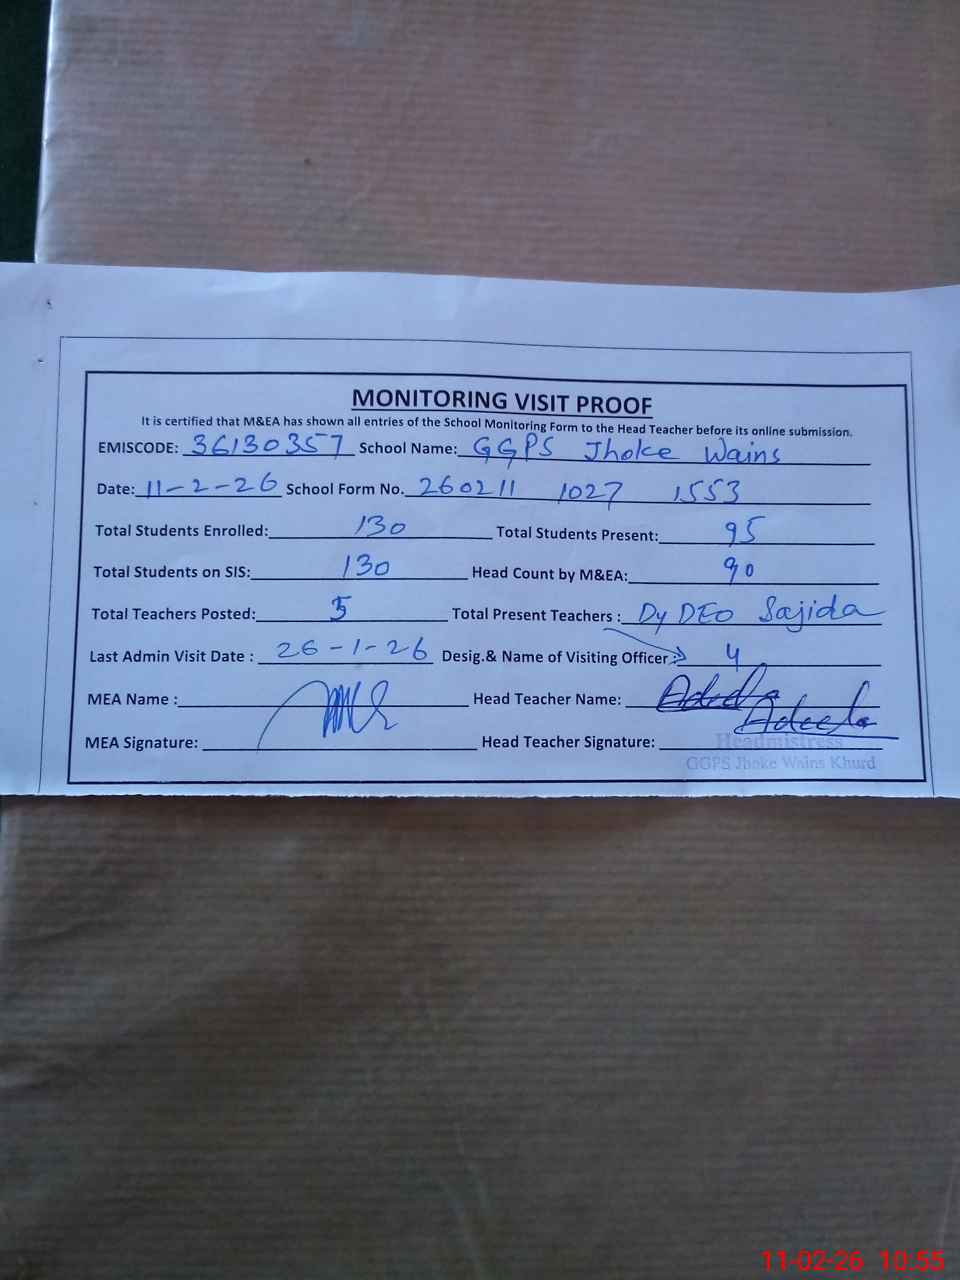 MONITORING VISIT PROOF
It is certified that M&EA has shown all entries of the School Monitoring Form to the Head Teacher before its online submission.
EMISCODE: 36130357 School Name: GGPS Jhoke Wains
Date: 11-2-26 School Form No. 260211 1027 1553
Total Students Enrolled: 130 Total Students Present: 95
Total Students on SIS: 130 Head Count by M&EA: 90
Total Teachers Posted: 5 Total Present Teachers : Dy DEO Sajida
Last Admin Visit Date : 26-1-26 Desig.& Name of Visiting Officer : 4
MEA Name : Head Teacher Name: Adeela
MEA Signature: Head Teacher Signature: Adeela
Headmistress
GGPS Jhoke Wains Khurd
11-02-26 10:55